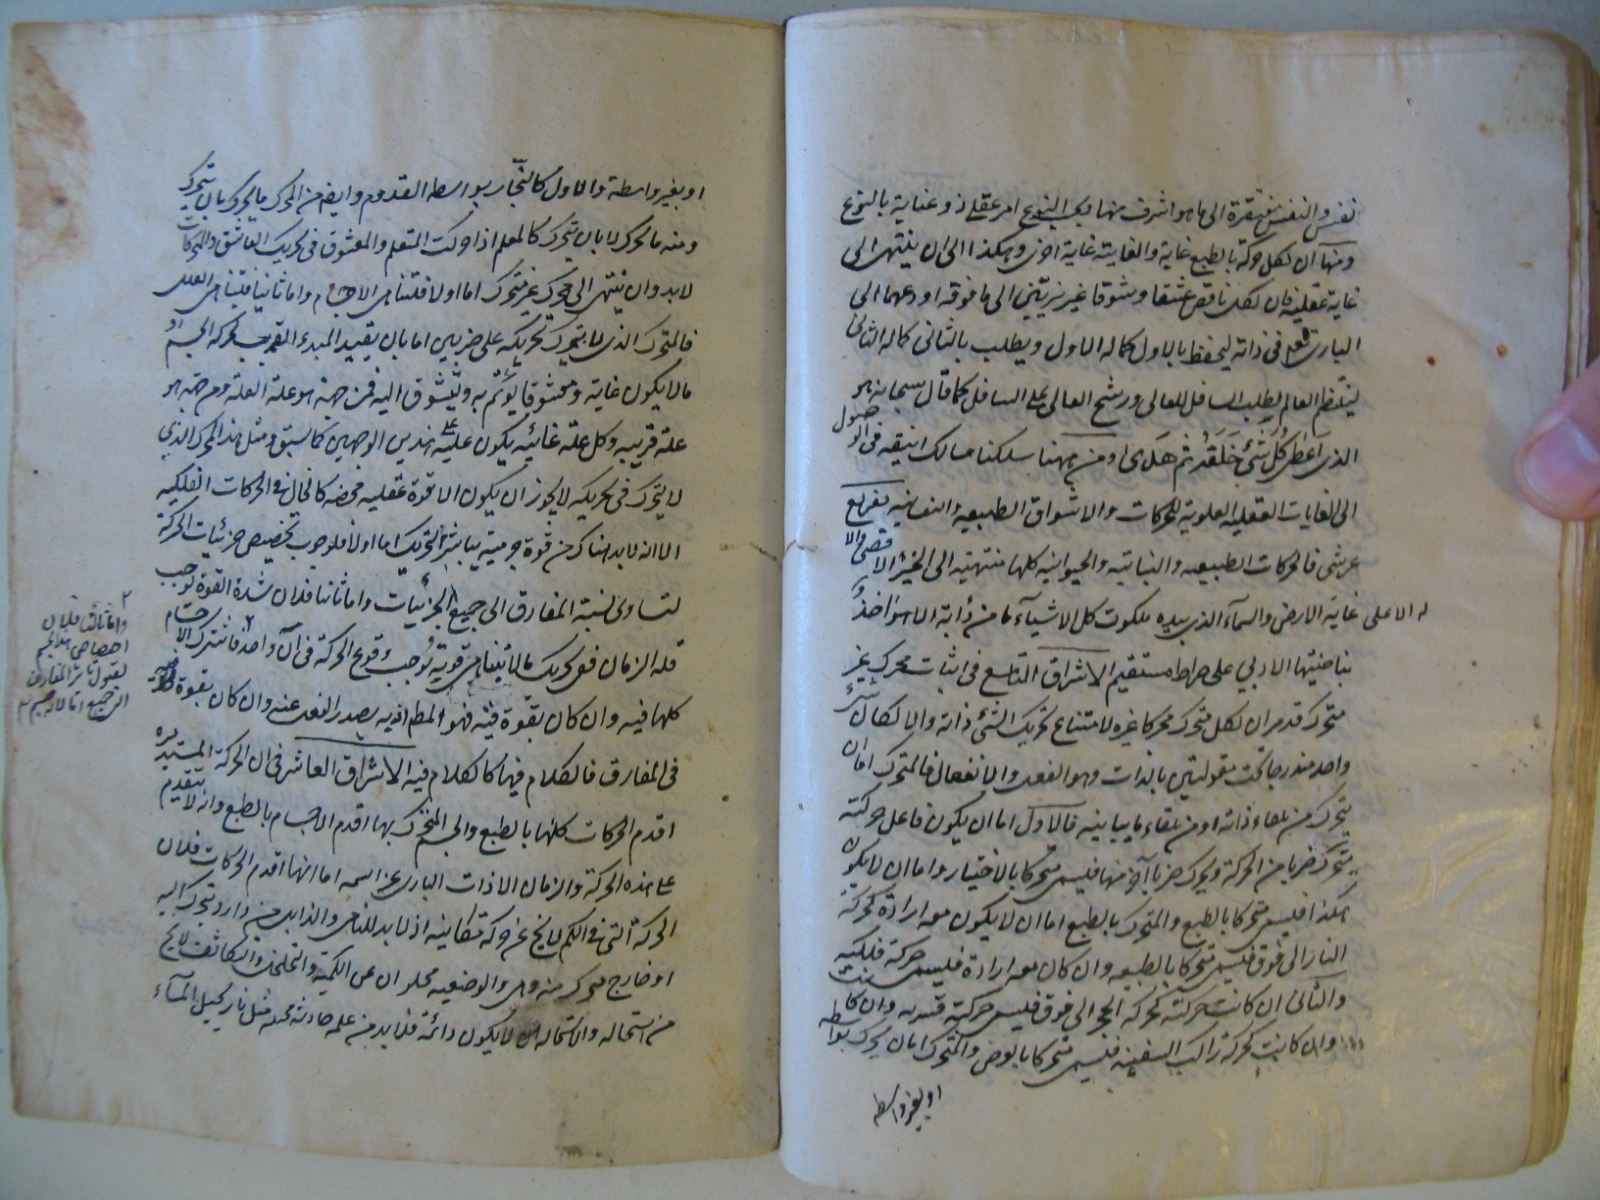 نفس والنفس مفتقرة الى ما هو اشرف منها فى النوع امر عقلى ذو عناية بالنوع
ومنها ان لكل حركة بالطبع غاية وللغاية غاية اخرى وهكذا الى ان ينتهى الى
غاية عقلية فان لكل ناقص عشقا وشوقا غريزيتين الى ما فوقه اودعهما الى
البارى فى ذاته ليحفظ بالاول كماله الاول ويطلب بالثانى كماله الثانى
لينتظم العالم بطلب السافل للعالى ورشح العالى على السافل كما قال سبحانه هو
الذى اعطى كل شئ خلقه ثم هدى ومن ههنا سلكنا مسالك انيقه فى الوصول
الى الغايات العقليه العلوية للحركات والاشواق الطبيعيه والنفسانيه تفريع
عرشى فالحركات الطبيعيه والنباتيه والحيوانيه كلها منتهية الى الخير الاقصى والا
له الاعلى غاية الارض والسماء الذى بيده ملكوت كل الاشياء ما من دابة الا هو اخذ
بناصيتها ان ربى على صراط مستقيم الاشراق التاسع فى اثبات محرك غير
متحرك قد مر ان لكل متحرك محركا غيره لامتناع تحريك الشئ ذاته والا لكان شئ
واحد مندرجا تحت مقولتين بالذات وهو الفعل والانفعال فالمتحرك اما ان
يتحرك من تلقاء ذاته او من تلقاء ما يباينه فالاول اما ان يكون فاعل حركته
يتحرك ضربا من الحركة ويحرك ضربا آخر منها فليسمى متحركا بالاختيار واما ان لا يكون
هكذا فليسمى متحركا بالطبع والمتحرك بالطبع اما ان لا يكون معه ارادة كحركة
النار الى فوق فليسمى متحركا بالطبيعه وان كان معه ارادة فليسمى حركة فلكيه
والثانى ان كانت حركته كحركة الحجر الى فوق فليسمى حركته قسريه وان كانت
وان كانت كحركة راكب السفينه فليسمى متحركا بالعرض والمتحرك اما ان يحرك بواسطه
او بغير واسطه
او بغير واسطة والاول كالنجار بواسطه القدوم وايضا من المحرك ما يحرك بان يتحرك
ومنه ما يحرك لا بان يتحرك كالمعلم اذا حركت المتعلم والمعشوق فى تحريك العاشق والمحركات
لا بد وان ينتهى الى محرك غير متحرك اما اولا فلتناهى الاجسام واما ثانيا فلتناهى العلل
فالمحرك الذى لا يتحرك تحريكه على ضربين اما بان يفيد المبدء القريب لحركه الجسم او
بان يكون غاية ومعشوقا يؤتم به ويتشوق اليه فمن جهة هو علة العلة ومن جهة هو
علة قريبه وكل علة غائيه يكون عليته على هذين الوجهين كما سبق ومثل هذا المحرك الذى
لا يتحرك فى تحريكه لا يجوز ان يكون الا قوة عقليه محضه كالحال فى الحركات الفلكيه
الا انه لا بد هناك من قوة جرمية يباشر التحريك اما اولا فلوجوب تخصيص جزئيات الحركة
لتساوى نسبة المفارق الى جميع الجزئيات واما ثانيا فلان شدة القوة توجب
قله الزمان فى تحريك ما لا يتناهى قوته توجب وقوع الحركة فى آن واحد فاشترك الاجسام
كلها فيه وان كان بقوة فيه فهو المطلوب انه يصدر الفعل عنه وان كان بقوة
فى المفارق فالكلام فيها كالكلام فيه الاشراق العاشر فى ان الحركة المستديره
اقدم الحركات كلها بالطبع والجسم المتحرك بها اقدم الاجسام بالطبع وانه لا يتقدم
على هذه الحركة والزمان الا ذات البارى عز اسمه اما انها اقدم الحركات فلان
الحركة التى فى الكم لا يخ عن حركة مكانيه اذ لا بد للنامى والذابل من وارد يتحرك اليه
او خارج يتحرك منه وهى والوضعيه يخلوان عن الكمية والتخلخل والتكاثف لا يخ
من استحاله والاستحاله لا يكون دائمة فلا بد من علة حادثه محيله مثل نار يحيل الماء
واما ثالثا فلان
اختصاص هذا الجسم
لقبول تأثير المفارق